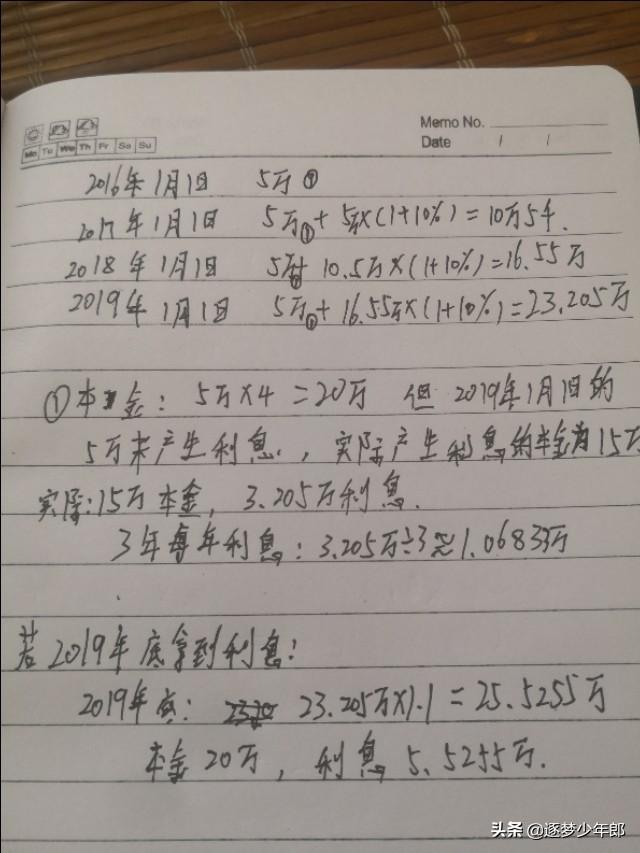 Memo No.
Date / /
Mo Tu We Th Fr Sa Su
2016年1月1日 5万①
2017年1月1日 5万①+5万×(1+10%)=10万5千.
2018年1月1日 5万①+10.5万×(1+10%)=16.55万
2019年1月1日 5万①+16.55万×(1+10%)=23.205万
①本金：5万×4=20万 但2019年1月1日的
5万未产生利息，实际产生利息的本金为15万
实际：15万本金，3.205万利息.
3年每年利息：3.205万÷3≈1.0683万
若2019年底拿到利息：
2019年底： 23.205万×1.1=25.5255万
本金20万，利息5.5255万.
头条 @逐梦少年郎